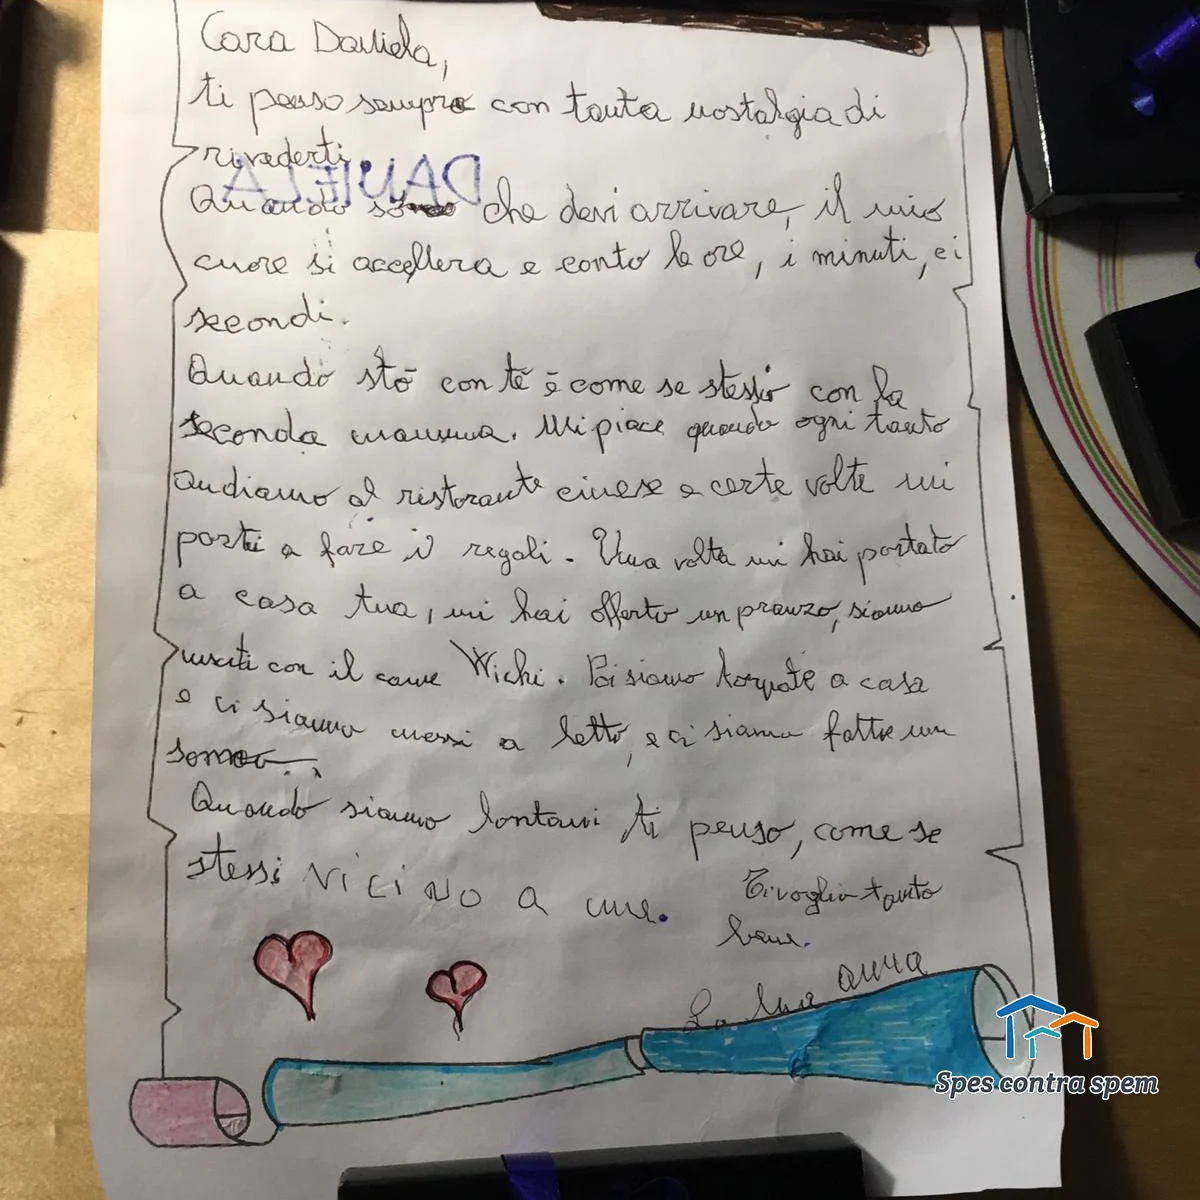 Cara Daniela,
ti penso sempre con tanta nostalgia di
rivederti.
DANIELA
Quando so che devi arrivare, il mio
cuore si accellera e conto le ore, i minuti, e i
secondi.
Quando stò con tè è come se stessi con la
seconda mamma. Mi piace quando ogni tanto
andiamo al ristorante cinese e certe volte mi
porti a fare i regali. Una volta mi hai portato
a casa tua, mi hai offerto un pranzo, siamo
usciti con il cane Wichi. Poi siamo tornate a casa
e ci siamo messi a letto, e ci siamo fatte un
sonno.
Quando siamo lontani ti penso, come se
stessi vicino a me.
Ti voglio tanto
bene.
La tua anna
Spes contra spem